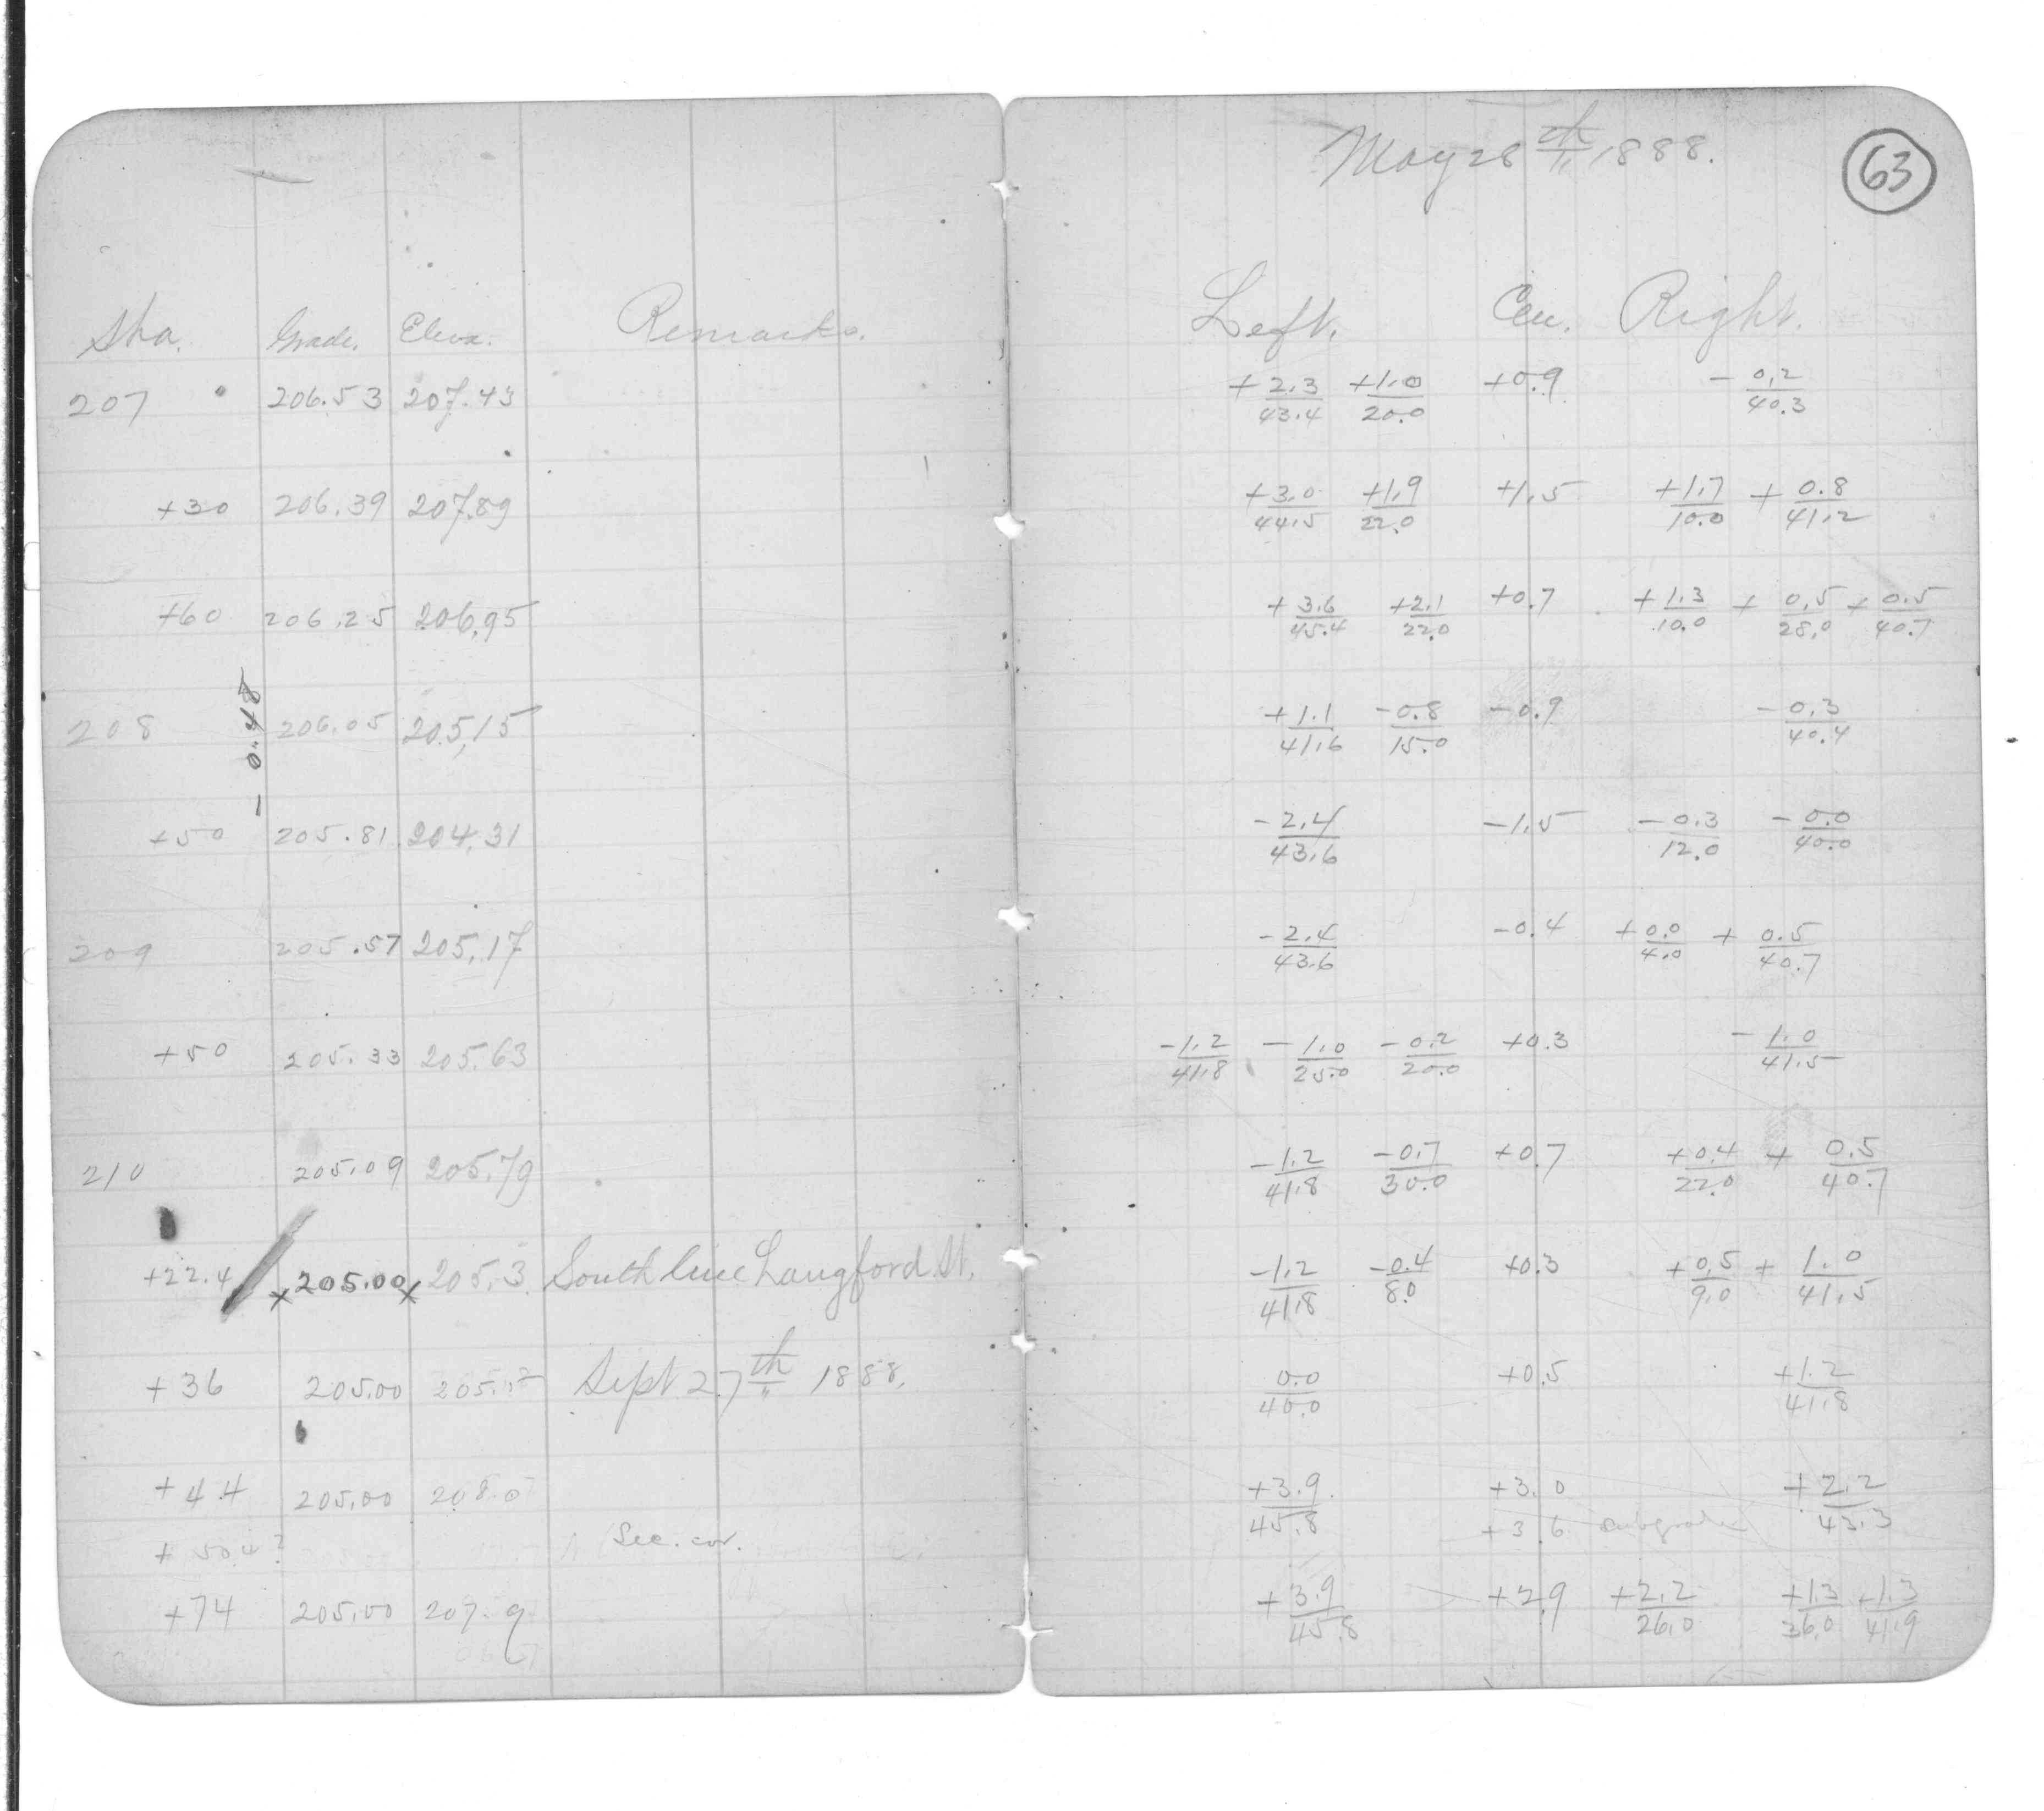 May 28th 1888.
63
Sta. Grade. Eleva. Remarks. Left. Cen. Right.
207 206.53 207.43 +2.3/43.4 +1.0/20.0 +0.9 -0.2/40.3
+30 206.39 207.89 +3.0/44.5 +1.9/22.0 +1.5 +1.7/10.0 +0.8/41.2
+60 206.25 206.95 +3.6/45.4 +2.1/22.0 +0.7 +1.3/10.0 +0.5/28.0 +0.5/40.7
- 0.48
208 206.05 205.15 +1.1/41.6 -0.8/15.0 -0.9 -0.3/40.4
+50 205.81 204.31 -2.4/43.6 -1.5 -0.3/12.0 -0.0/40.0
209 205.57 205.17 -2.4/43.6 -0.4 +0.0/4.0 +0.5/40.7
+50 205.33 205.63 -1.2/41.8 -1.0/25.0 -0.2/20.0 +0.3 -1.0/41.5
210 205.09 205.79 -1.2/41.8 -0.7/30.0 +0.7 +0.4/22.0 +0.5/40.7
+22.4 x 205.00 x 205.3 South line Langford St. -1.2/41.8 -0.4/8.0 +0.3 +0.5/9.0 +1.0/41.5
+36 205.00 Sept 27th 1888. 0.0/40.0 +0.5 +1.2/41.8
+44 205.00 208.0 +3.9/45.8 +3.0 +2.2/43.3
+50.4? Sec. cor. +3.6 subgrade
+74 205.00 207.9 +3.9/45.8 +2.9 +2.2/26.0 +1.3/36.0 +1.3/41.9